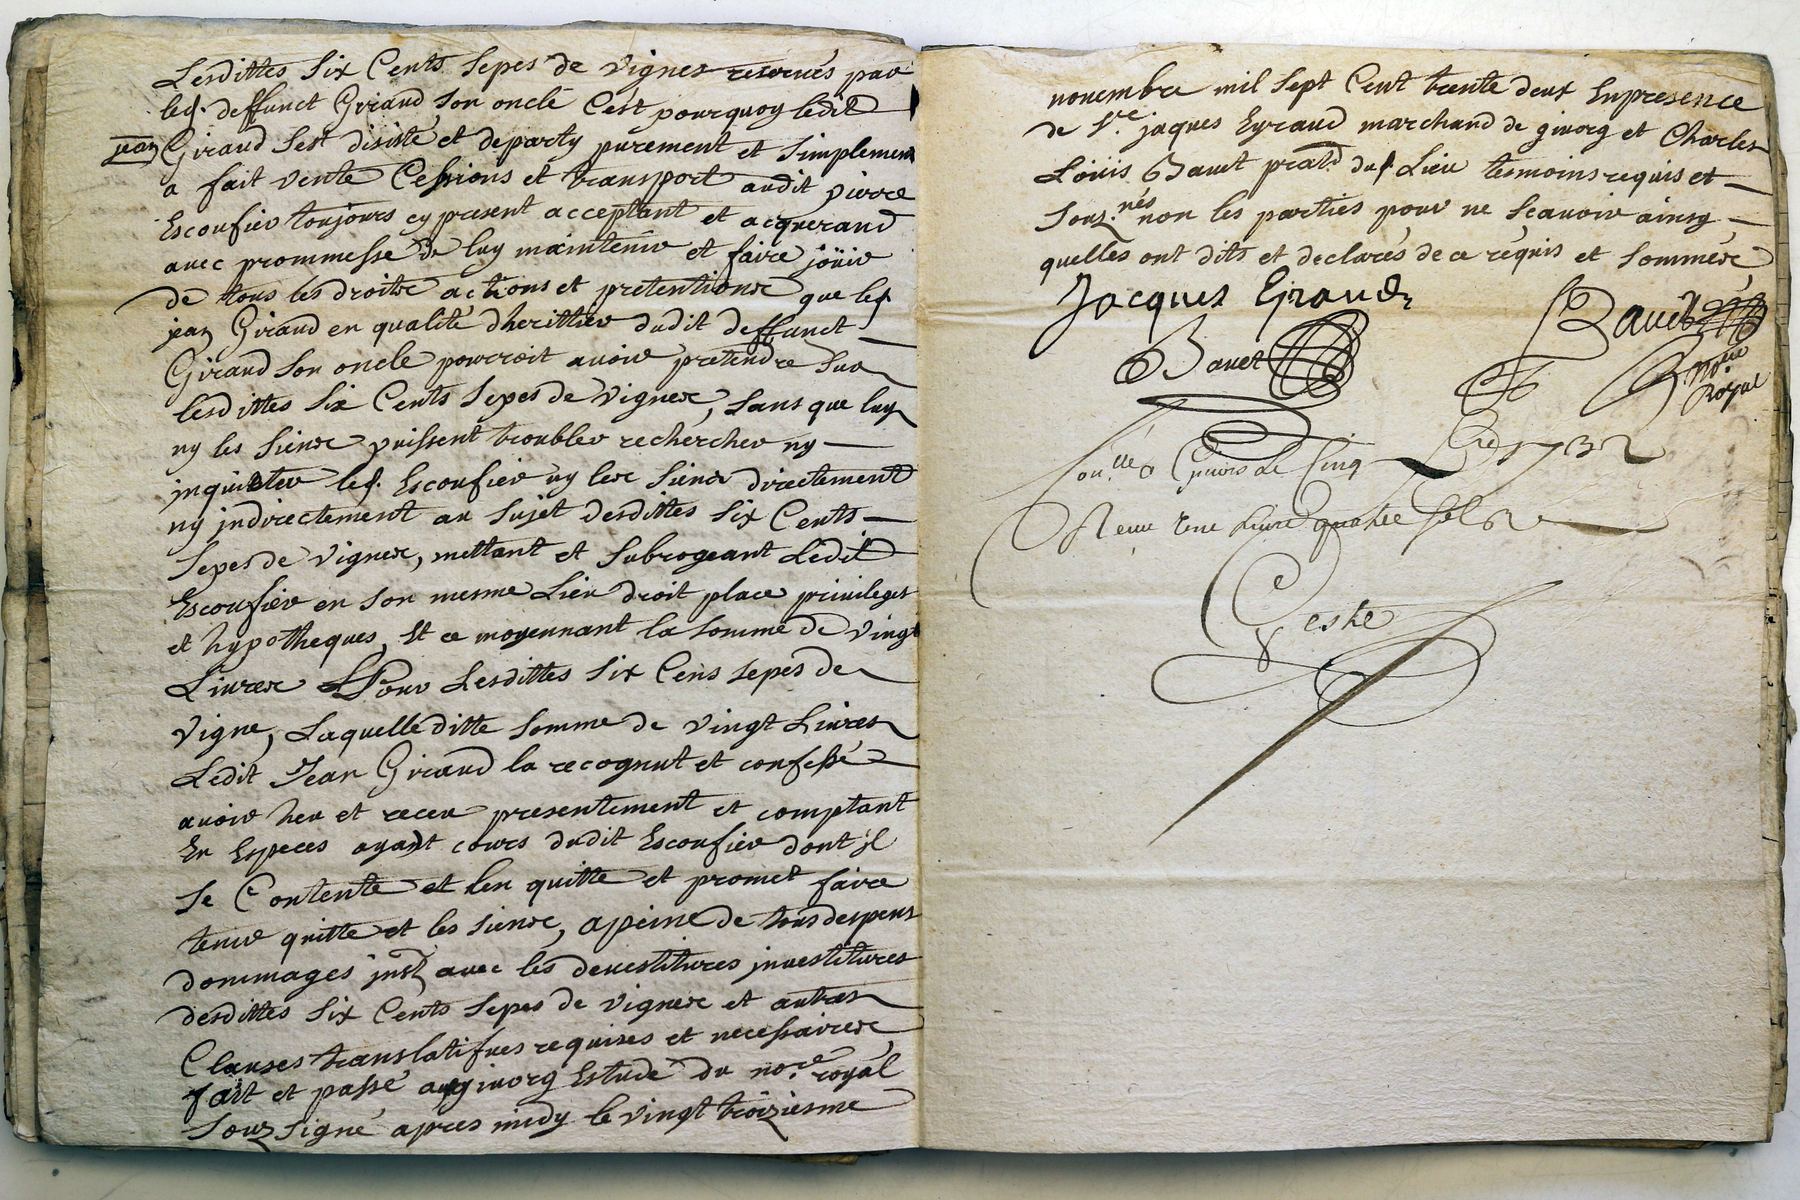 Lesdittes Six Cents Sepes de vignes reservés par
led. deffunct Giraud son oncle C'est pourquoy ledit
jean Giraud sest disisté et departy purement et simplement
a fait vente Cessions et transport audit pierre
Escoufier toujours cy present acceptant et acquerand
avec prommesse de luy maintenir et faire joüir
de tous les droits actions et pretentions que led
jean Giraud en qualité dherittier dudit deffunct
Giraud son oncle pourroit avoir pretendre sur
lesdittes Six Cents Sepes de vignes, sans que luy
ny les siens puissent troubler rechercher ny
inquieter led. Escoufier ny les siens directement
ny jndirectement au sujet desdittes Six Cents
Sepes de vignes, mettant et subrogeant Ledit
Escoufier en son mesme Lieu droit place privileges
et hypotheques, Et ce moyennant la somme de vingt
Livres Pour Lesdittes Six Cens sepes de
vigne, Laquelle ditte somme de vingt Livres
Ledit Jean Giraud la recognut et confessé
avoir heu et receu presentement et comptant
En Especes ayant cours dudit Escoufier dont jl
se Contente et len quitte et promet faire
tenir quitte et les siens, apeine de tous despens
dommages jnst avec les devestitures jnvestitures
desdittes Six Cents Sepes de vignes et autres
Clauses translatifves requises et necessaires
fait et passé a givorg Estude du no.re royal
Souzsigné apres midy le vingt troiziesme
novembre mil sept Cent trente deux Enpresence
de S.re jaques Eyraud marchand de givorg et Charles
Loüis Bauet pratd. dud Lieu tesmoins requis et
Souz.nés non les parties pour ne scavoir ainsy
quelles ont dits et declarés de ce requis et sommés
Jacques Eyraud
Bauet
Bauet
no.re
Royal
Con.llé a Givors le Cinq Xbre 1732
Receu une livre quatre sols
Geste